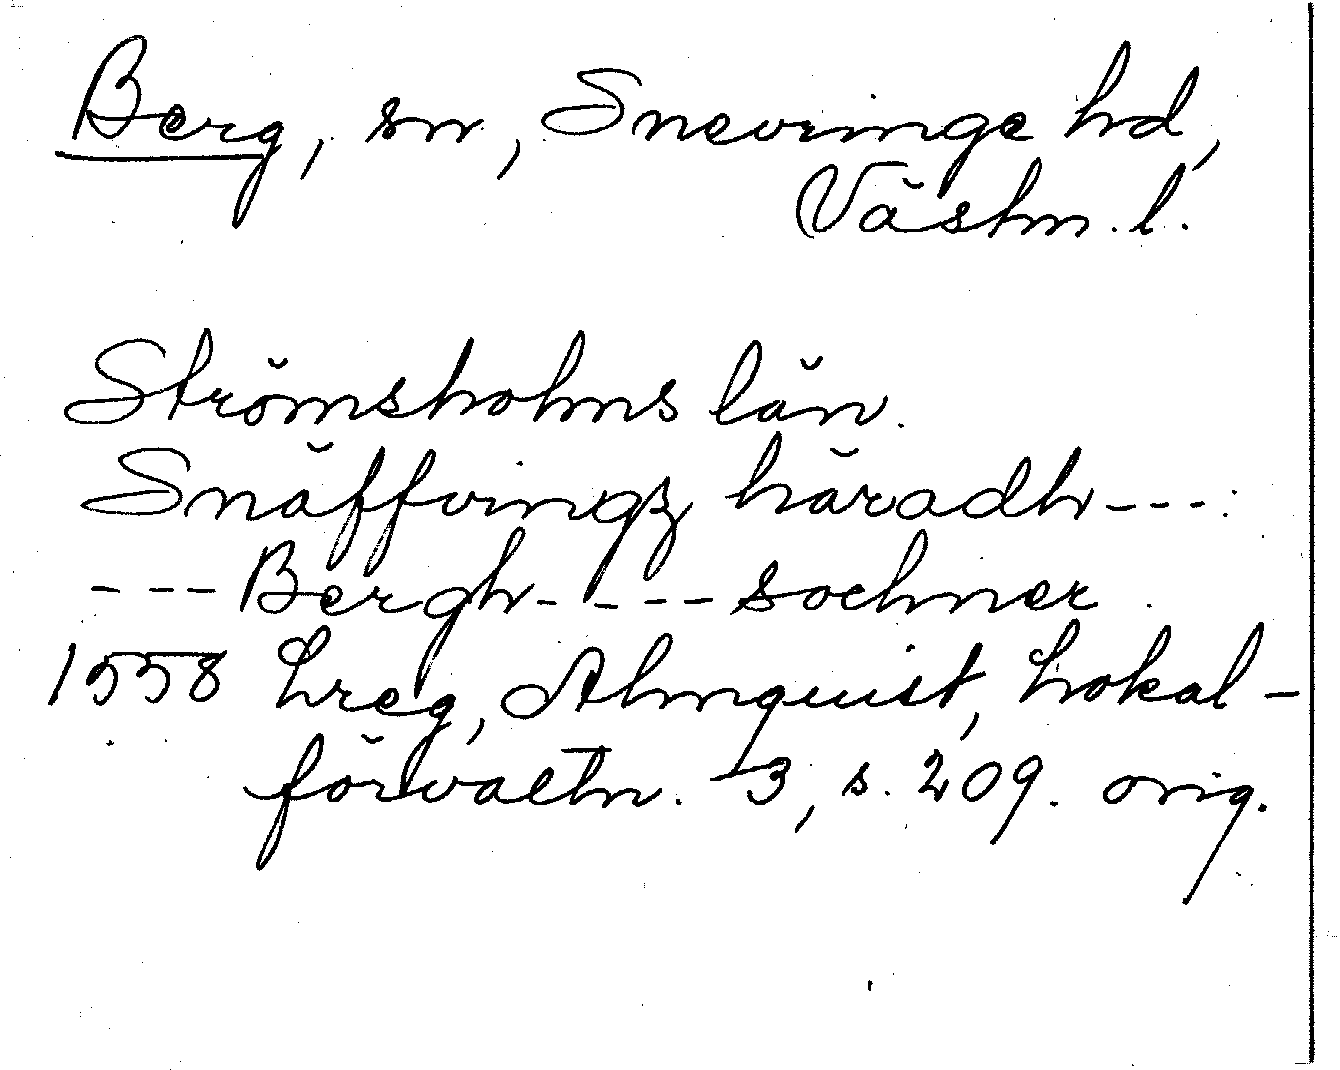 Berg, sn, Snevringe hd,
Västm. l.
Strömsholms län.
Snäffringz häradh---.
---Bergh----sochner.
1558 Lreg, Almquist, Lokal-
förvaltn. 3, s. 209. orig.